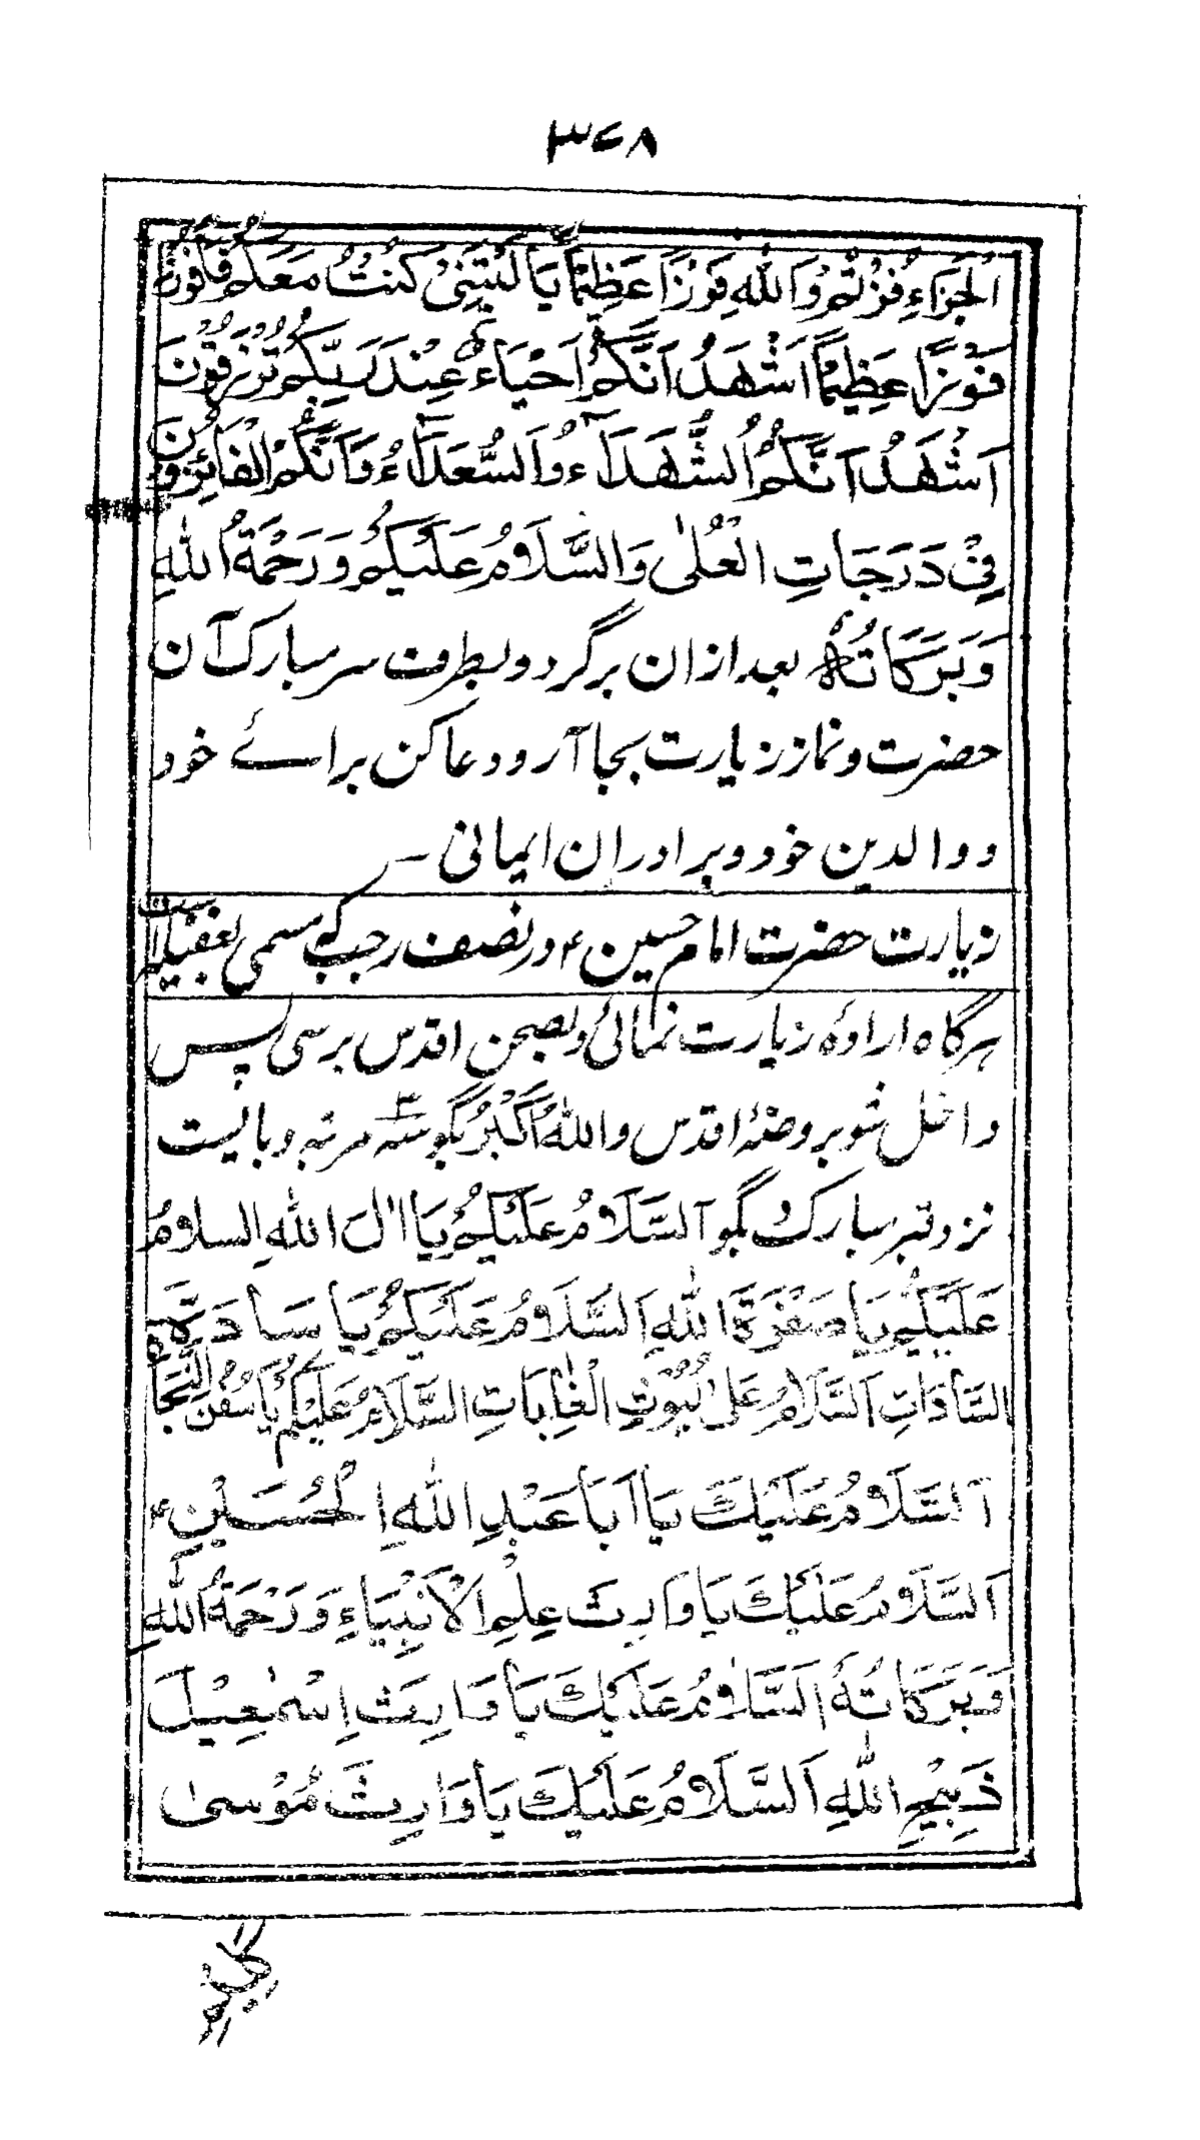 ۳۶۸
الْجَزَاءِ فُزْتُمْ وَاللهِ فَوْزًا عَظِيْمًا يَا لَيْتَنِيْ كُنْتُ مَعَكُمْ فَاَفُوْزَ
فَوْزًا عَظِيْمًا اَشْهَدُ اَنَّكُمْ اَحْيَاءٌ عِنْدَ رَبِّكُمْ تُرْزَقُوْنَ
اَشْهَدُ اَنَّكُمُ الشُّهَدَآءُ وَالسُّعَدَآءُ وَاَنَّكُمُ الْفَائِزُوْنَ
فِيْ دَرَجَاتِ الْعُلٰى وَالسَّلَامُ عَلَيْكُمْ وَرَحْمَةُ اللهِ
وَبَرَكَاتُهٗ بعد ازان برگرد و بطرف سر مبارک آن
حضرت و نماز زیارت بجا آر و دعا کن برائے خود
و والدین خود و برادران ایمانی ۔
زیارت حضرت امام حسین ؑ در نصف رجب که مسمی بغفیله است
هرگاه ارادهٔ زیارت نمائی و بصحن اقدس برسی پس
داخل شو بروضهٔ اقدس واللهُ اَكْبَرُ بگو سه ۳ مرتبه و بایست
نزد قبر مبارک بگو اَلسَّلَامُ عَلَيْكُمْ يَا اٰلَ اللهِ السلامُ
عَلَيْكُمْ يَا صَفْوَةَ اللهِ اَلسَّلَامُ عَلَيْكُمْ يَا سَادَةَ
السَّادَاتِ اَلسَّلَامُ عَلٰى لُيُوْثِ الْغَابَاتِ السَّلَامُ عَلَيْكُمْ يَا سُفُنَ النَّجَاةِ
اَلسَّلَامُ عَلَيْكَ يَا اَبَا عَبْدِ اللهِ الْحُسَيْنِ ؑ
اَلسَّلَامُ عَلَيْكَ يَا وَارِثَ عِلْمِ الْاَنْبِيَاءِ وَرَحْمَةُ اللهِ
وَبَرَكَاتُهُ اَلسَّلَامُ عَلَيْكَ يَا وَارِثَ اِسْمٰعِيْلَ
ذَبِيْحِ اللهِ اَلسَّلَامُ عَلَيْكَ يَا وَارِثَ مُوْسٰى